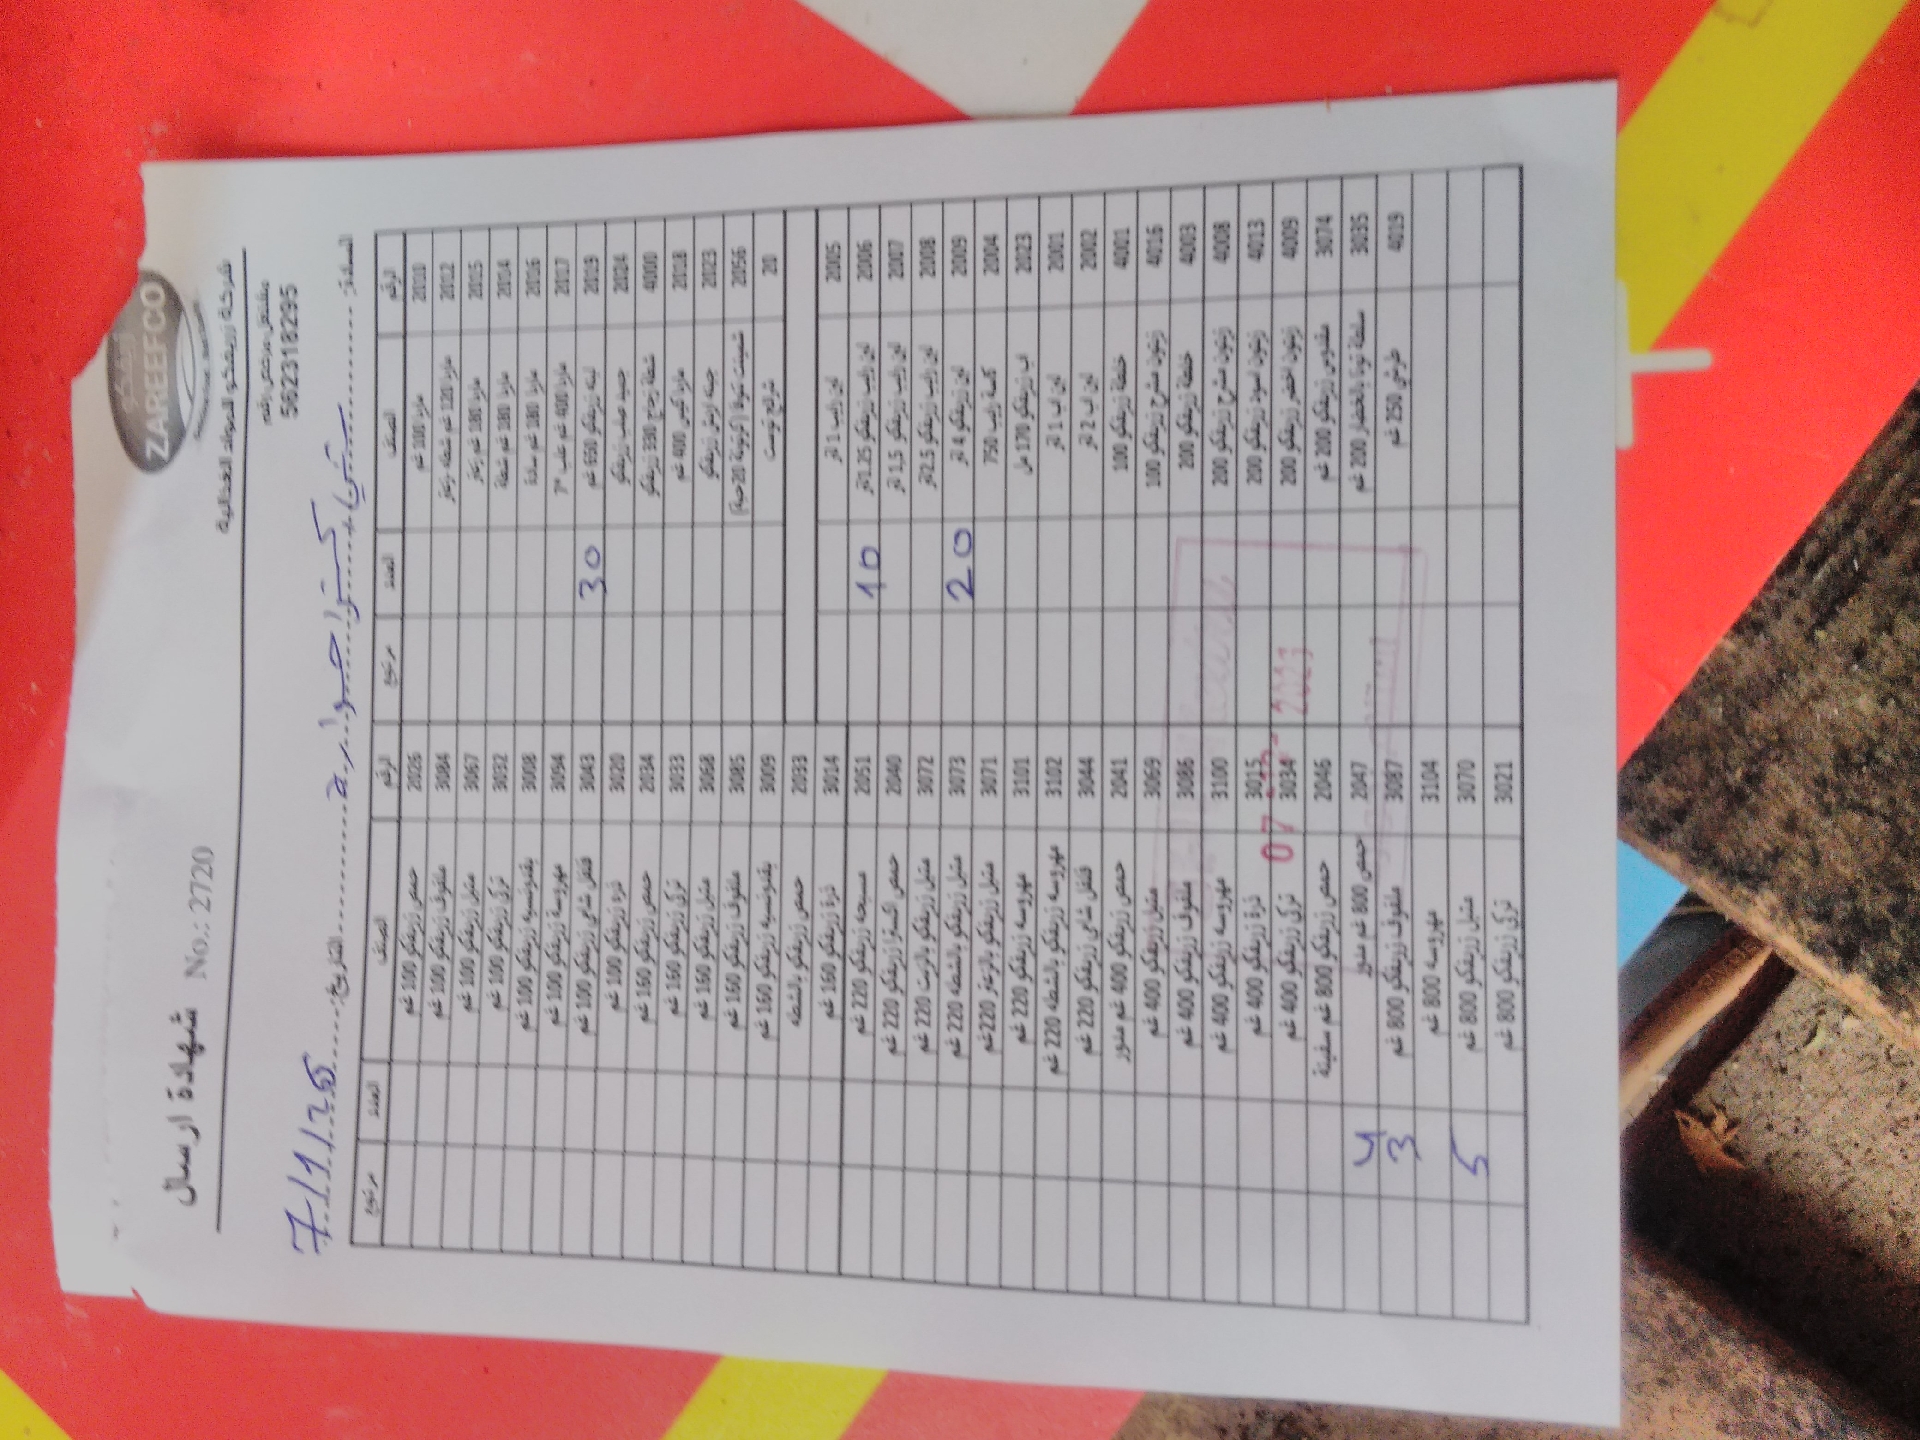 ZAREEFCO
شركة زريفكو للمواد الغذائية
مشتغل مرخص رقم
562318295
شهادة ارسال No.: 2720
السادة: التاريخ: 7/11/25
الرقم الصنف العدد مرتجع الرقم الصنف العدد مرتجع
2010 مازدا 100 غم 2026 حمص زريفكو 100 غم
2012 مازدا 120 غم شطه زعتر 3084 ملفوف زريفكو 100 غم
2015 مازدا 180 غم زعتر 3067 متبل زريفكو 100 غم
2014 مازدا 180 غم شطة 3032 تركي زريفكو 100 غم
2016 مازدا 180 غم سادة 3008 بقدونسيه زريفكو 100 غم
2017 مازدا 400 غم علب 3094 مهروسة زريفكو 100 غم
2019 لبنه زريفكو 650 غم 30 3043 فلفل شامي زريفكو 100 غم
2024 زريفكو 3020 ذرة زريفكو 100 غم
4000 شطة زجاج 330 زريفكو 2034 حمص زريفكو 160 غم
2018 مازدا كيس 400 غم 3033 تركي زريفكو 160 غم
2023 جبنه زريفكو 3068 متبل زريفكو 160 غم
2056 3085 ملفوف زريفكو 160 غم
20 شرائح توست 3009 بقدونسيه زريفكو 160 غم
2033 حمص زريفكو بالشطه
2005 لبن رايب 1 لتر 3014 ذرة زريفكو 160 غم
2006 لبن رايب زريفكو 1.25 لتر 10 2051 مسبحه زريفكو 220 غم
2007 لبن رايب زريفكو 1,5 لتر 2040 حمص اكسترا زريفكو 220 غم
2008 لبن رايب زريفكو 2.5 لتر 3072 متبل زريفكو بالزيت 220 غم
2009 لبن زريفكو 4 لتر 20 3073 متبل زريفكو بالشطه 220 غم
2004 كاسة رايب 750 3071 متبل زريفكو بالزعتر 220 غم
2023 اب زريفكو 170 مل 3101 مهروسه زريفكو 220 غم
2001 لبن اب 1 لتر 3102 مهروسه زريفكو بالشطه 220 غم
2002 لبن اب 2 لتر 3044 فلفل شامي زريفكو 220 غم
4001 خلطة زريفكو 100 2041 حمص زريفكو 400 غم مدور
4016 زيتون مشرح زريفكو 100 3069 متبل زريفكو 400 غم
4003 خلطة زريفكو 200 3086 ملفوف زريفكو 400 غم
4008 زيتون مشرح زريفكو 200 3100 مهروسه زريفكو 400 غم
4013 زيتون اسود زريفكو 200 3015 ذرة زريفكو 400 غم
4009 زيتون اخضر زريفكو 200 3034 تركي زريفكو 400 غم
3074 مقدوس زريفكو 200 غم 2046 حمص زريفكو 800 غم سفينة
3035 سلطة تونا بالخضار 200 غم 2047 حمص 800 غم مدور 4
4019 طرشي 250 غم 3087 ملفوف زريفكو 800 غم 3
3104 مهروسه 800 غم
3070 متبل زريفكو 800 غم 5
3021 تركي زريفكو 800 غم